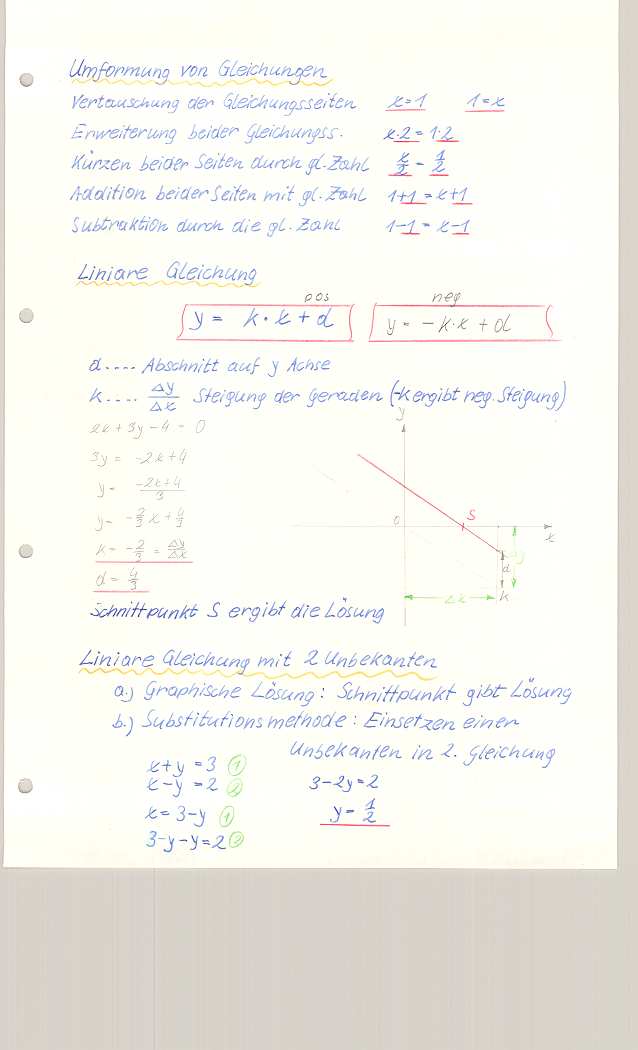 Umformung von Gleichungen
Vertauschung der Gleichungsseiten x=1 1=x
Erweiterung beider Gleichungss. x·2=1·2
Kürzen beider Seiten durch gl. Zahl x/2 = 1/2
Addition beider Seiten mit gl. Zahl 1+1=x+1
Subtraktion durch die gl. Zahl 1-1=x-1
Liniare Gleichung
pos neg
y = k·x+d y = -k·x+d
d.... Abschnitt auf y Achse
k.... Δy/Δx Steigung der Geraden (-k ergibt neg. Steigung)
y
2x+3y-4=0
3y = -2x+4
y = -2x+4/3
S
y = -2/3 x + 4/3
0
x
k = -2/3 = Δy/Δx
Δy
d
d = 4/3
Δx
k
Schnittpunkt S ergibt die Lösung
Liniare Gleichung mit 2 Unbekanten
a.) Graphische Lösung: Schnittpunkt gibt Lösung
b.) Substitutionsmethode: Einsetzen einer
Unbekanten in 2. Gleichung
x+y=3 1
x-y=2 2 3-2y=2
x=3-y 1 y=1/2
3-y-y=2 2